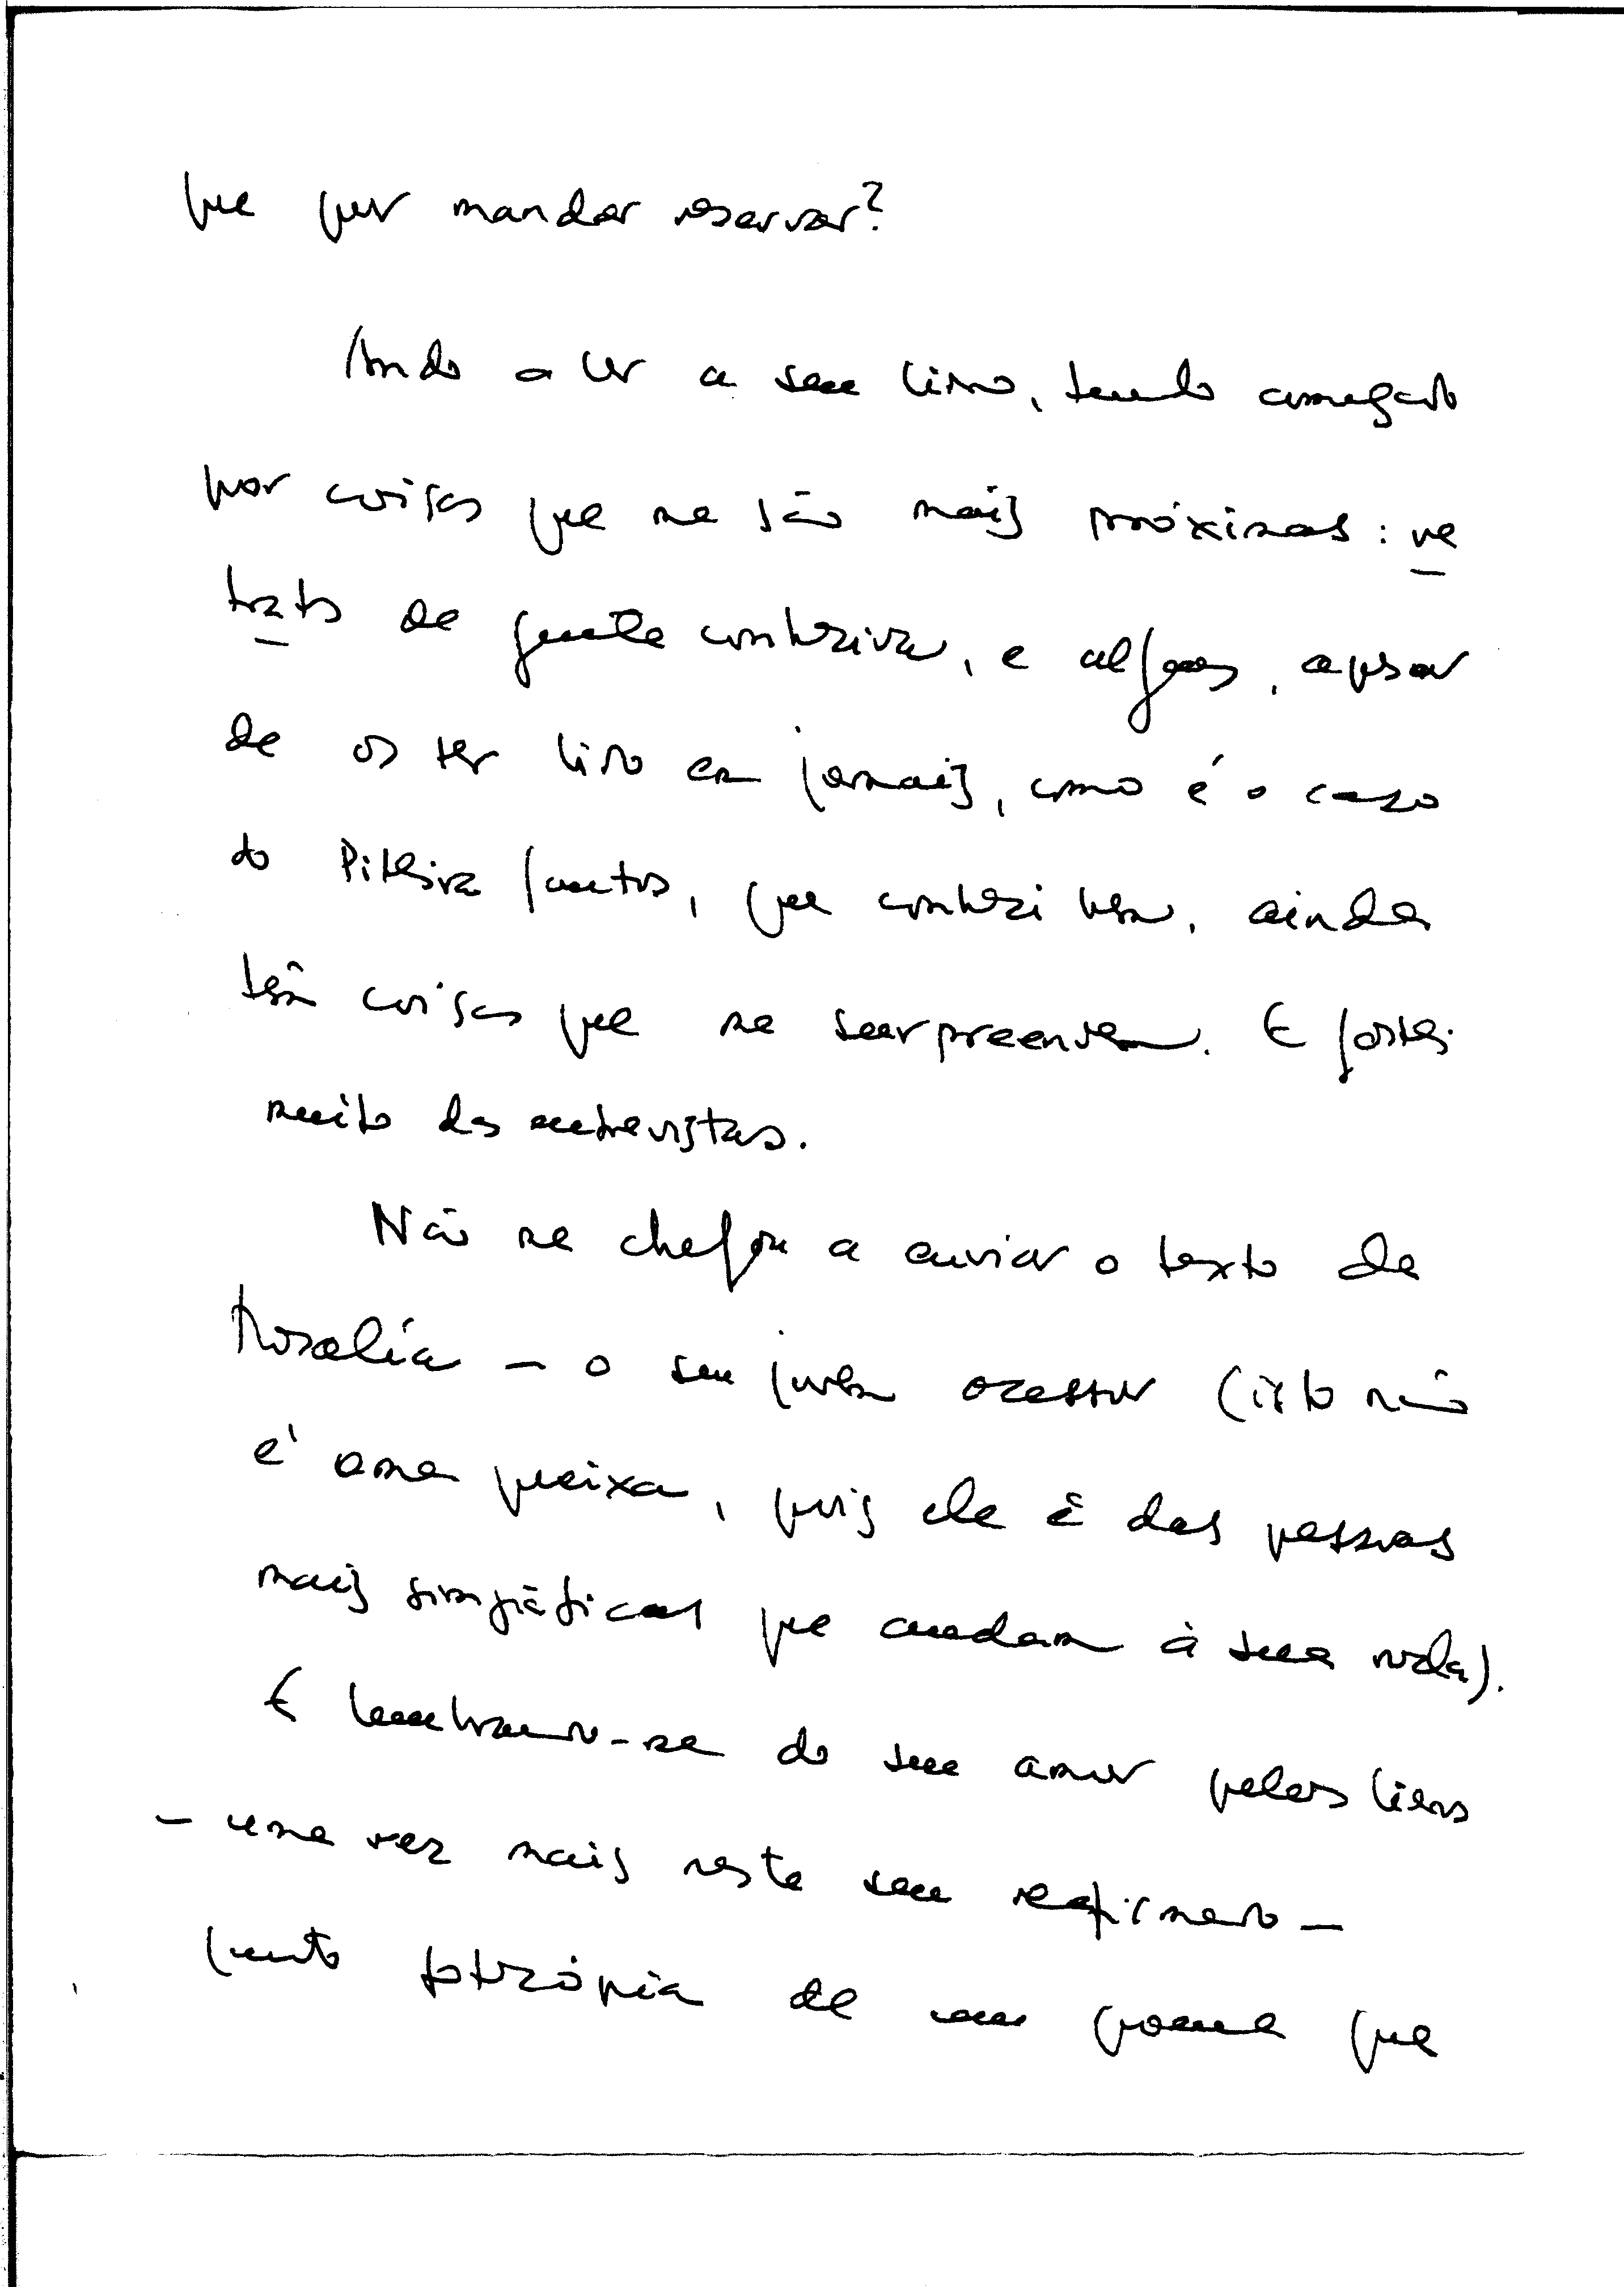 que quer mandar reservar?
Ando a ler o seu livro, tendo começado
por coisas que me são mais próximas: re
trato de gente conhecida, e alguns, apesar
de os ter lido em jornais, como é o caso
do Piteira Santos, que conheci bem, ainda
têm coisas que me surpreendem. E gostei
muito das entrevistas.
Não me chegou a enviar o texto da
Rosalía – o seu jovem assessor (isto não
é uma queixa, pois ele é das pessoas
mais simpáticas que andam à sua roda).
E lembrando-me do seu amor pelos
– uma vez mais neste seu reafirmado –
junto fotocópia de um poema que